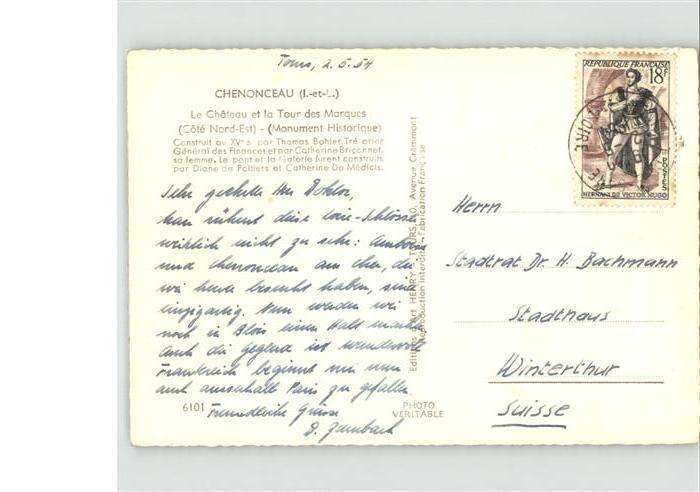 Tours, 2.5.54
CHENONCEAU (I.-et-L.)
Le Château et la Tour des Marques
(Côté Nord-Est) - (Monument Historique)
Construit au XVe s. par Thomas Bohier Trésorier
Général des Finances et par Catherine Briçonnet,
sa femme. Le pont et la Galerie furent construits
par Diane de Poitiers et Catherine De Médicis.
Sehr geehrter Herr Doktor,
man rühmt diese Loire-Schlösser
wirklich nicht zu sehr: Amboise
und Chenonceau am Cher, die
wir heute besucht haben, sind
einzigartig. Nun werden wir
noch in Blois einen Halt machen
auch die Gegend ist wundervoll
Frankreich beginnt mir nun
auch ausserhalb Paris zu gefallen.
Freundliche Grüsse
6101
PHOTO
VERITABLE
Editions d'Art HENRY - TOURS, Avenue Grammont
Reproduction Interdite - Fabrication Française
REPUBLIQUE FRANÇAISE
18F
POSTES
HERNANI DE VICTOR HUGO
Herrn
Stadtrat Dr. H. Bachmann
Stadthaus
Winterthur
Suisse